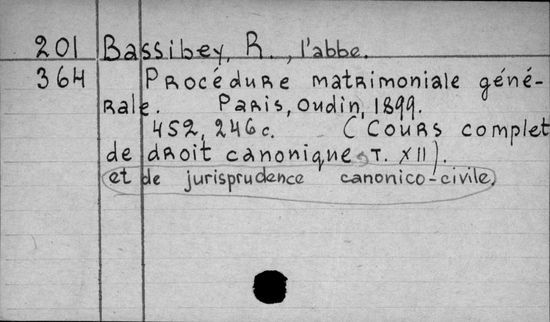 201 Bassibey, R., l'abbe.
364 Procédure matrimoniale géné-
rale. Paris, Oudin, 1899.
452, 246 c. (Cours complet
de droit canonique, T. XII).
et de jurisprudence canonico-civile.